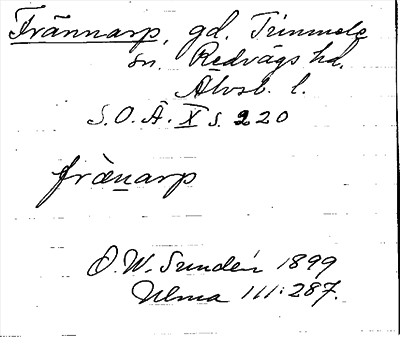 Frännarp, gd. Timmele
sn. Redvägs hd.
Älvsb. l.
S.O.Ä. X s. 220
frænarp
O.W. Sundén 1899
Ulma 111:287.